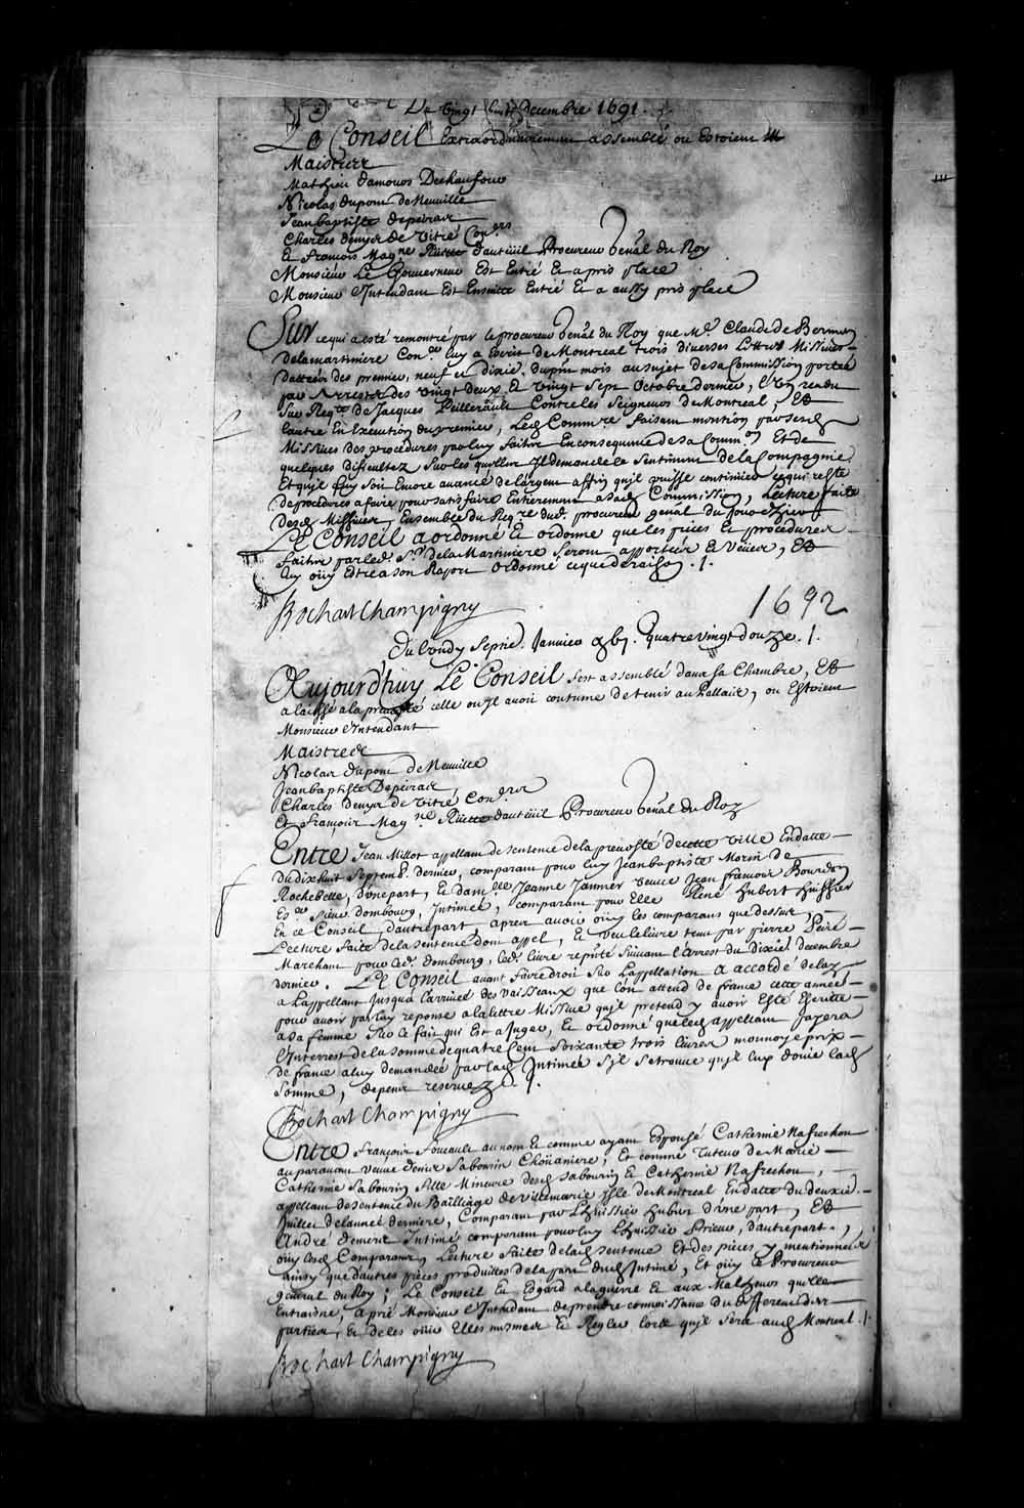 Du vingt huit Decembre 1691.
Le Conseil Extraordinairement assemblé ou Estoient Mrs
Maistres
Mathieu damours Deschaufour
Nicolas dupont de Neuville
Jean baptiste depeiras
Charles denys de Vitré Coners
Et françois Magne Rüette dauteüil Procureur General du Roy
Monsieur Le Gouverneur Est Entré Et a pris place
Monsieur L'Intendant Est Ensuitte Entré Et a aussy pris place
Sur ce qui a esté remontré par le procureur General du Roy que Me Claude de Bermen
delamartiniere Coner luy a Escrit de Montreal trois diverses Lettres Missives
dattées des premier, neuf et dixie. du pnt mois au sujet de sa Commission portée
par Arrests des vingt deux Et vingt Sept Octobre dernier, L'un rendu
Sur Reqte de Jacques Peillerault Contre les Seigneurs de Montreal, Et
lautre En Execution du premier, Led Commre faisant mention par sesd
Missives des procedures par luy faites En consequence de sa Common Et de
quelques difficultez Sur lesquelles Il demande le Sentiment de la Compagnie,
Et qu'il luy Soit Encore avancé de largent affin qu'il puisse continuer ce qui reste
de procedures a faire pour satisfaire Entierement a sad Commission, Lecture faite
desd Missives, Ensemble du Reqre dud. procureur general du
Le Conseil a ordonné Et ordonne que les pieces Et procedures
faites par led. Sr de la Martiniere Seront apportées Et veües, Et
luy oüy Estre a son Raport ordonné ce que de raison ./.
Bochart Champigny
1692
Du lundy Septie. Janvier gbi. quatre vingt douze ./.
Aujourd'huy Le Conseil s'est assemblé dans sa Chambre, Et
a laissé a la prevosté celle ou Il avoit coutume de tenir au Pallais, ou Estoient
Monsieur L'Intendant
Maistres
Nicolas dupont de Neuville
Jean baptiste Depeiras,
Charles denys de Vitré Coners
Et françois Magne Rüette dauteüil Procureur General du Roy
Entre Jean Millot appellant de sentence de la prevosté de cette ville En datte
du dix huit Septembe dernier, comparant pour luy Jean baptiste Morin de
Rochebelle, d'une part, Et damlle Jeanne Jannier veuve Jean francois Bourdon
Esr Sieur dombourg, Intimée, comparant pour Elle René hubert huissier
En ce Conseil, d'autre part, apres avoir oüy les comparans que dessus,
Lecture faite de la sentence dont appel, Et veu le livre tenu par pierre Peiré
Marchant pour led. dombourg, led. livre reputé Suivant l'arrest du dixie. decembre
dernier. Le Conseil avant faire droit Sur l'appellation a accordé delay
a L'appellant jusqu'a l'arrivée des vaisseaux que l'on attend de france cette année
pour avoir par luy reponse a la lettre Missive qu'il pretend y avoir Esté Escritte
a sa femme Sur le fait qui Est a Juger, Et ordonné que led appellant payera
L'interest de la somme de quatre Cent soixante trois livres monnoye prix
de france a luy demandée par lad Intimée S'il se trouve qu'il luy doive lad
Somme, depens reservez ./.
Bochart Champigny
Entre françois foucault au nom Et comme ayant Espousé Catherine Nafrechou
auparavant veuve denis Sabourin Choüaniere, Et comme tuteur de Marie
Catherine Sabourin fille Mineure desd Sabourin Et Catherine Nafrechou,
appellant de sentence du Bailliage de ville marie Isle de Montreal En datte du deuxie.
Juillet de l'année derniere, Comparant par L'huissier hubert d'une part, Et
André demers Intimé comparant pour luy L'huissier Prieur, d'autre part.,
oüy lesd Comparans, Lecture faite de lad sentence Et des pieces y mentionnées
ainsy que d'autres pieces produittes de la part dud Intimé, Et oüy le Procureur
general du Roy; Le Conseil Eu Esgard a la guerre Et aux Malheurs qu'elle
Entraisne, a prié Monsieur L'Intendant de prendre connoissance du different des
parties, Et de les oüir Elles mesmes Et Regler lors qu'il sera aud Montreal ./.
Bochart Champigny